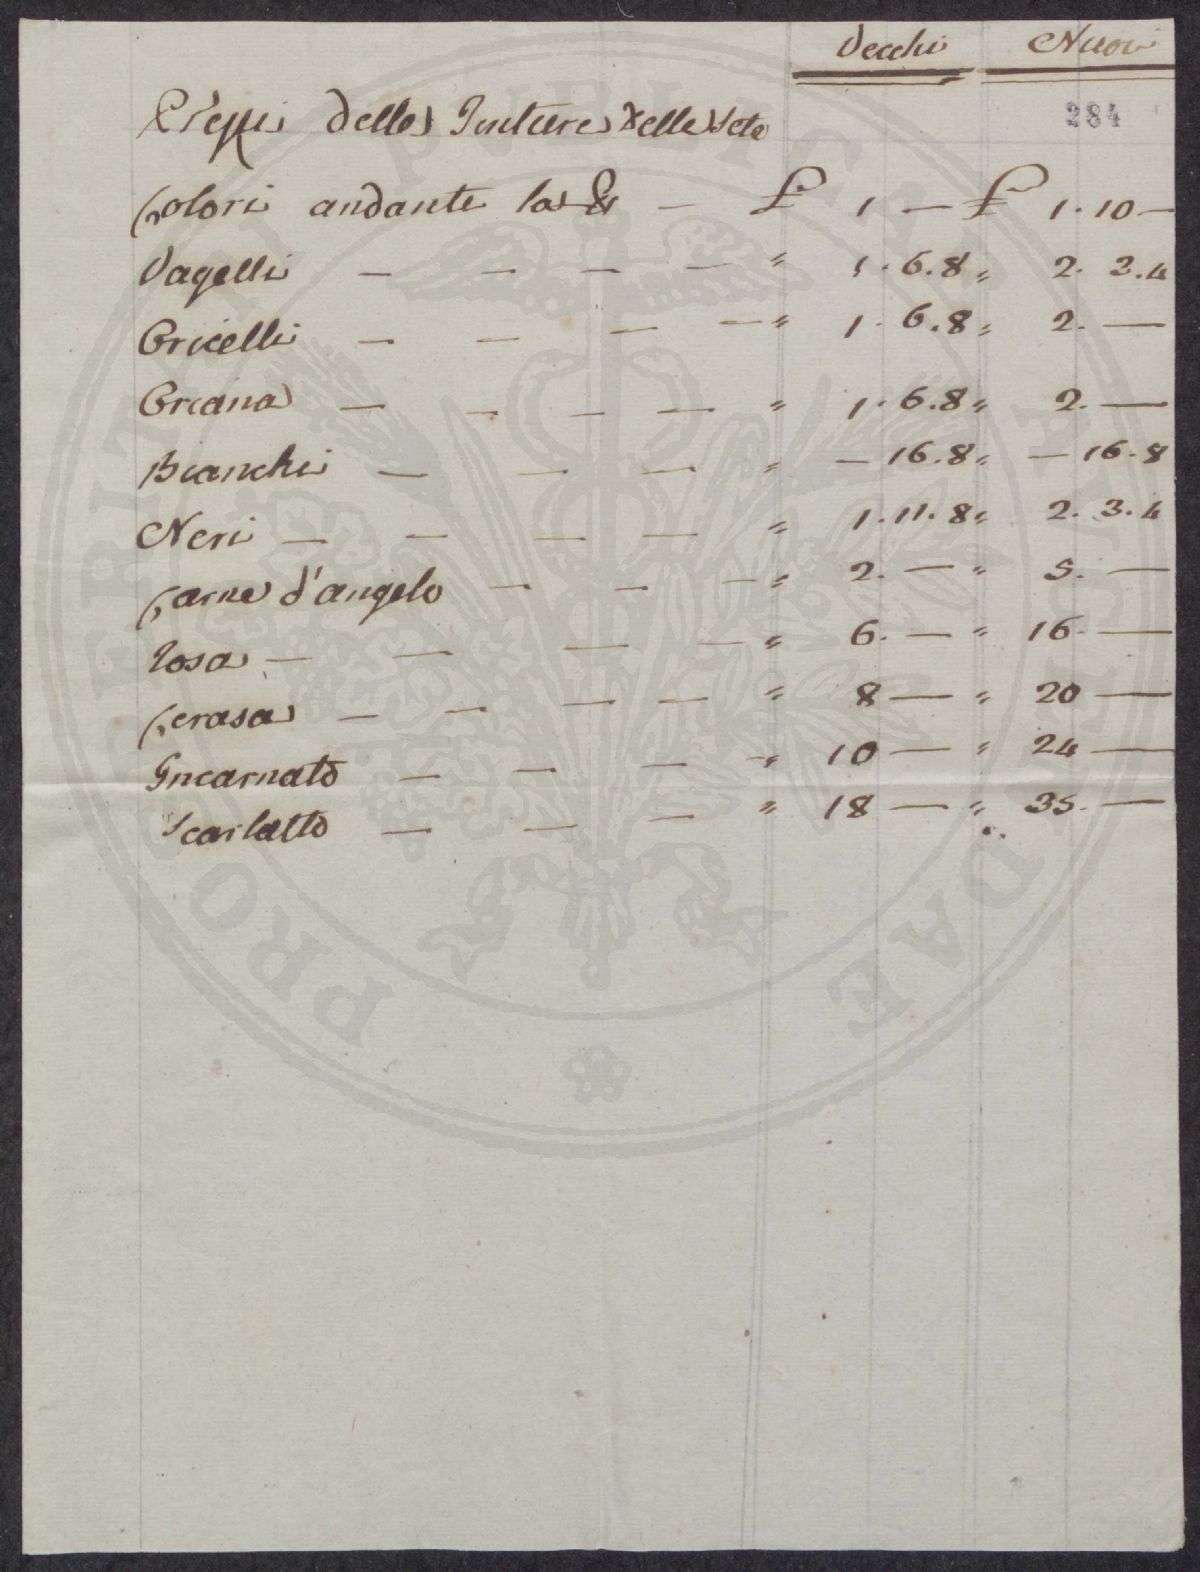 Vecchi Nuovi
284
Prezzi delle Tinture delle Sete
Colori andante la £ — £ 1 — £ 1.10 —
Vagelli — — — — " 1.6.8 " 2. 3.4
Oricelli — — — — " 1.6.8 " 2. —
Oriana — — — — " 1.6.8 " 2. —
Bianchi — — — " — 16.8 " — 16.8
Neri — — — — " 1.11.8 " 2. 3.4
Carne d'angelo — — — " 2. — " 5. —
Rosa — — — — " 6. — " 16 —
Cerasa — — — — " 8 — " 20 —
Incarnato — — — " 10 — " 24 —
Scarlatto — — — " 18 — " 35. —
PUBLICAE PROSPERITATI AUGENDAE